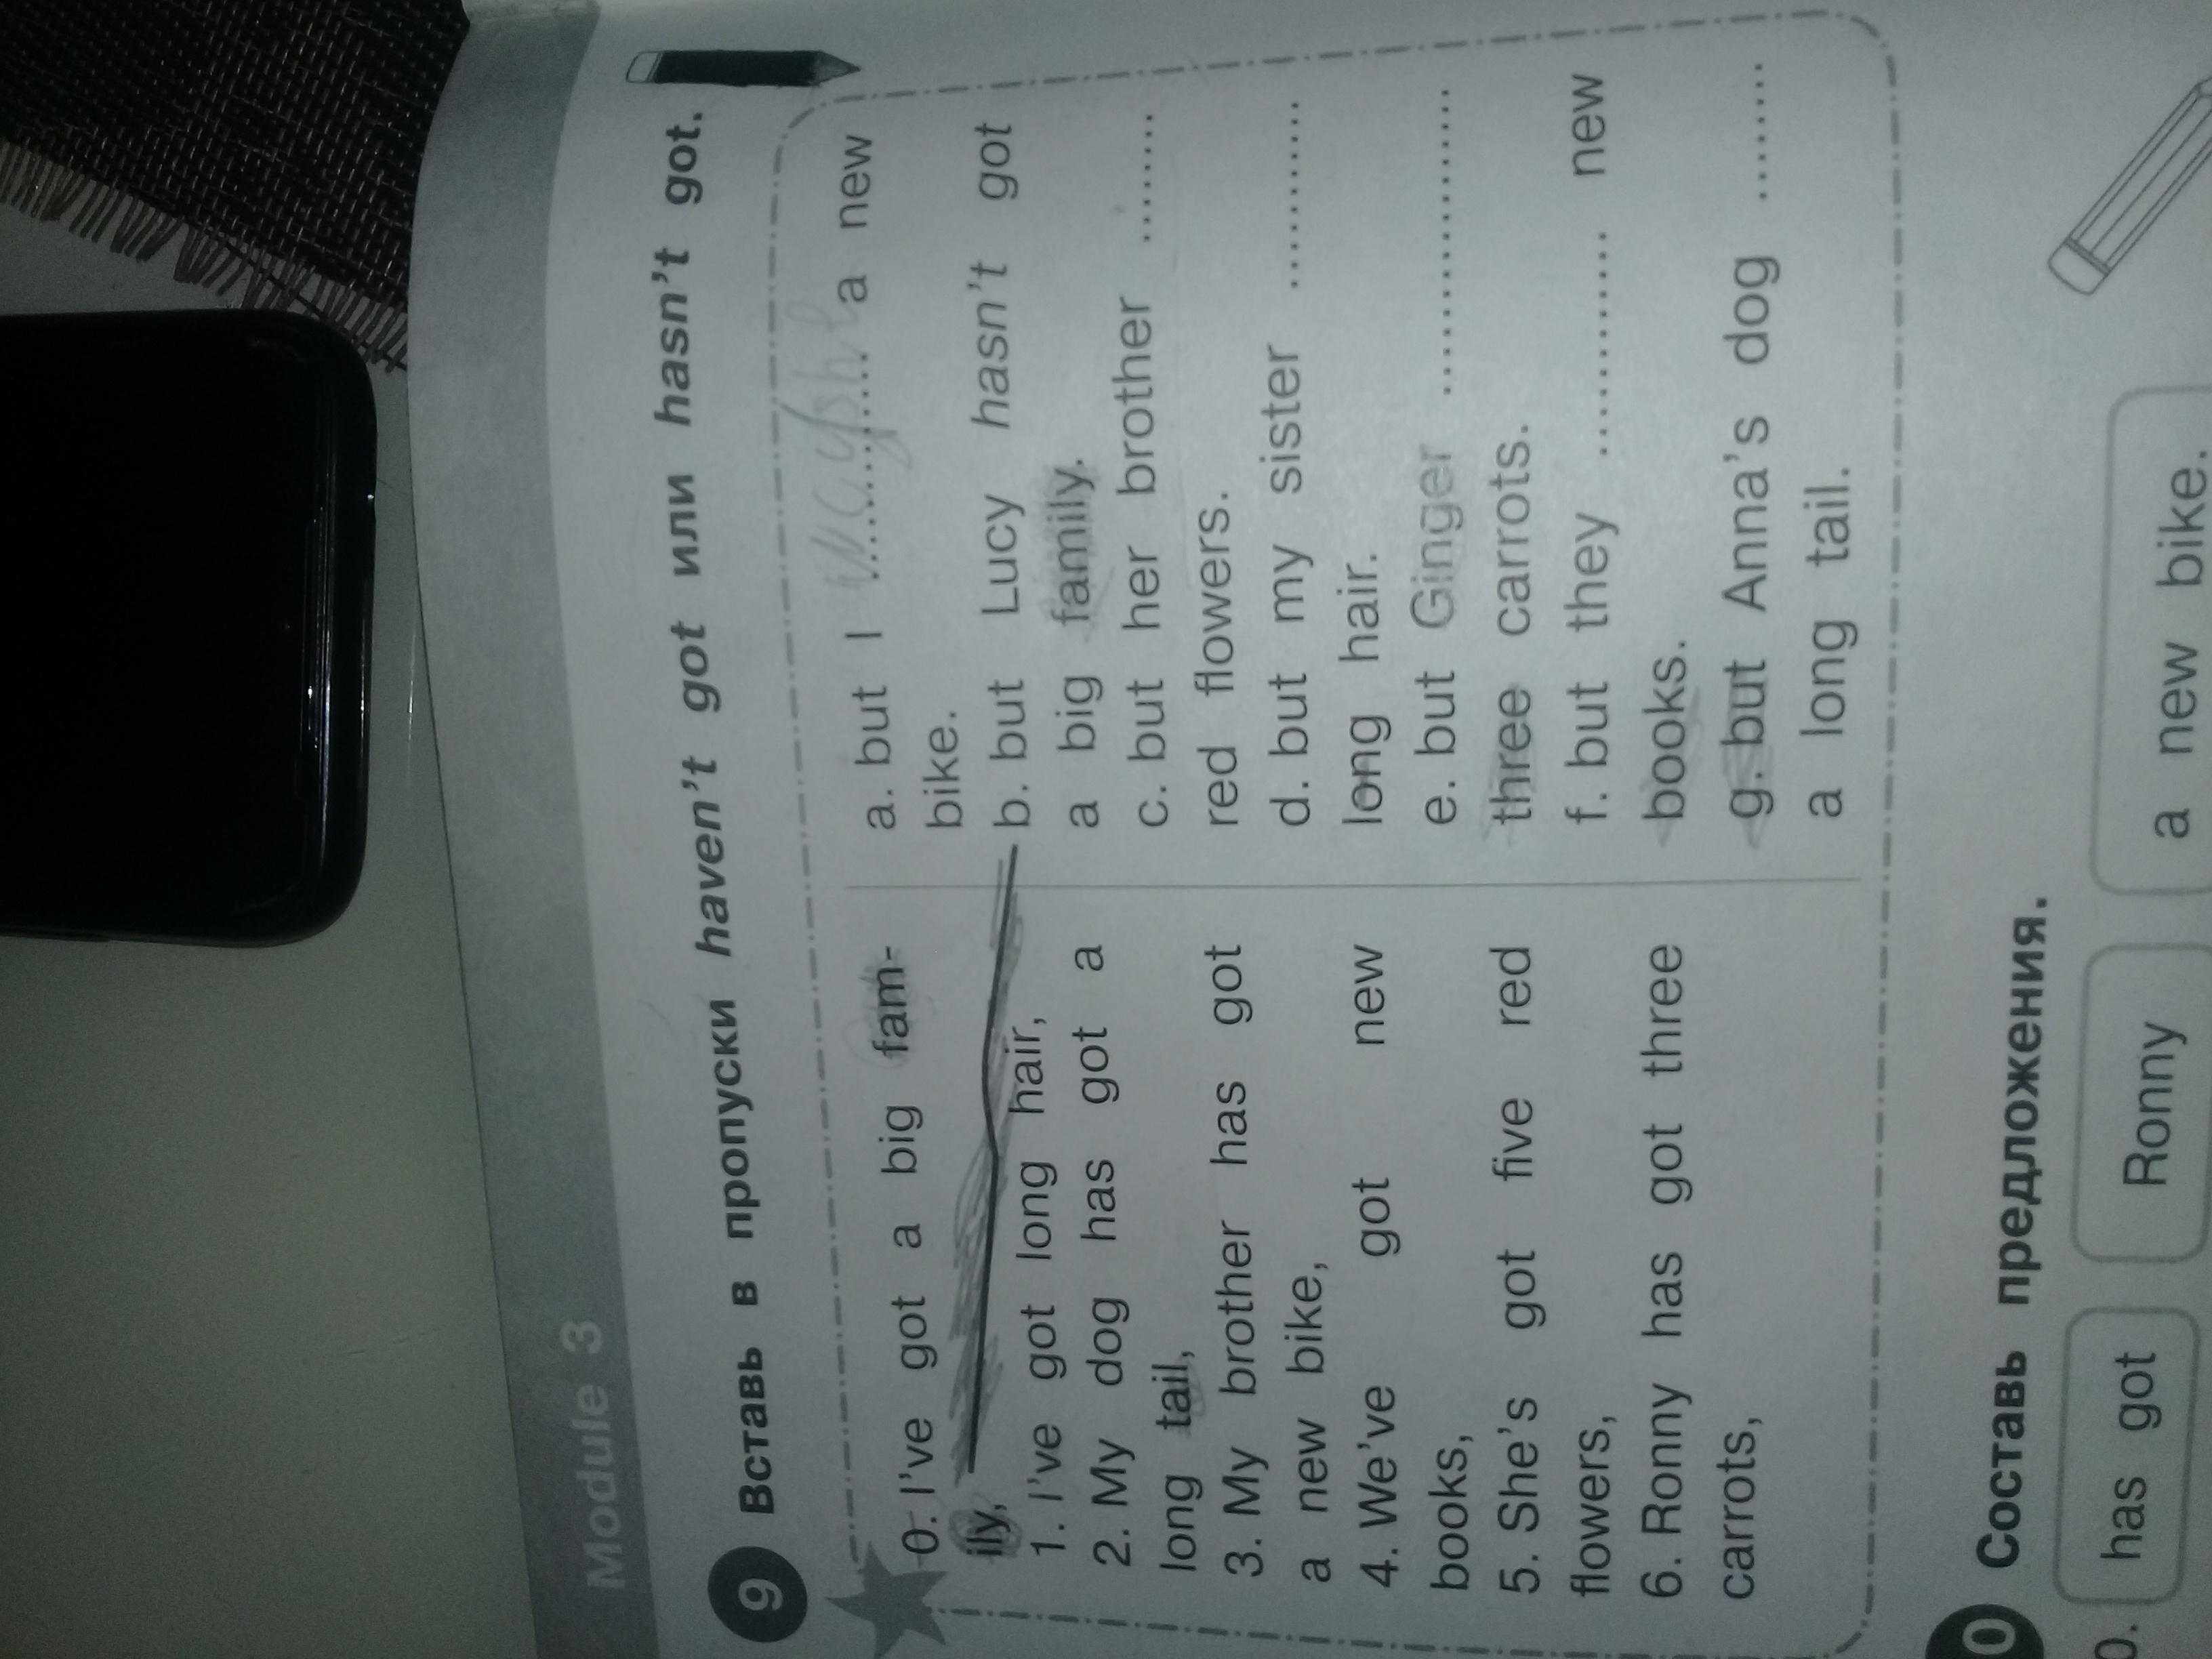 Module 3
9 Вставь в пропуски haven't got или hasn't got.
0. I've got a big fam-
ily,
1. I've got long hair,
2. My dog has got a
long tail,
3. My brother has got
a new bike,
4. We've got new
books,
5. She's got five red
flowers,
6. Ronny has got three
carrots,
a. but I ............ a new
bike.
b. but Lucy hasn't got
a big family.
c. but her brother ........
red flowers.
d. but my sister ...........
long hair.
e. but Ginger ..................
three carrots.
f. but they ............. new
books.
g. but Anna's dog ........
a long tail.
0 Составь предложения.
0. has got Ronny a new bike.